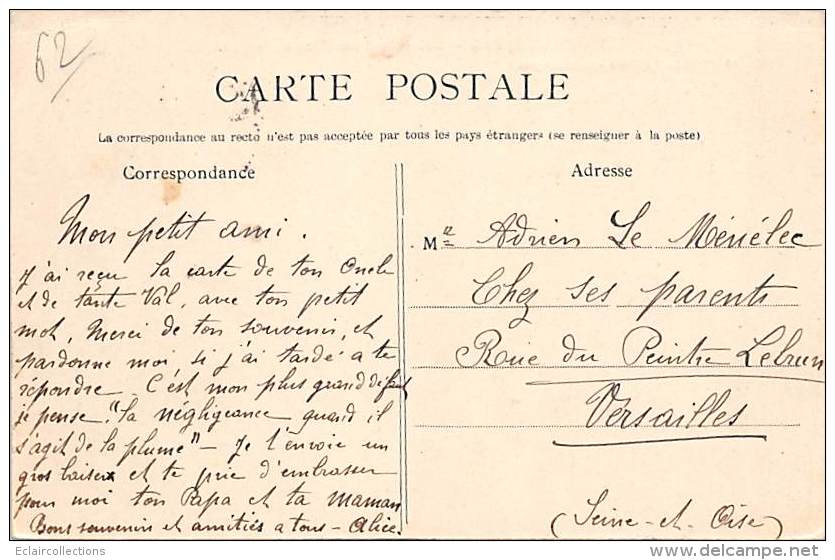 62
CARTE POSTALE
La correspondance au recto n'est pas acceptée par tous les pays étrangers (se renseigner à la poste)
Correspondance
Mon petit ami.
J'ai reçu la carte de ton Oncle
et de tante Val, avec ton petit
mot, Merci de ton souvenir, et
pardonne moi si j'ai tardé a te
répondre. C'est mon plus grand défaut
je pense. "la négligeance quand il
s'agit de la plume" - Je t'envoie un
gros baiser et te prie d'embrasser
pour moi ton Papa et ta maman
Bons souvenirs et amitiés a tous - Alice.
Adresse
Mr Adrien Le Ménélec
Chez ses parents
Rue du Peintre Lebrun
Versailles
(Seine-et-Oise)
Eclaircollections
www.delcampe.net